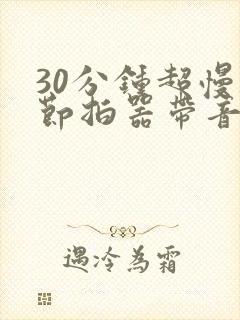 30分鍾超慢
節拍器帶音
遇冷為霜